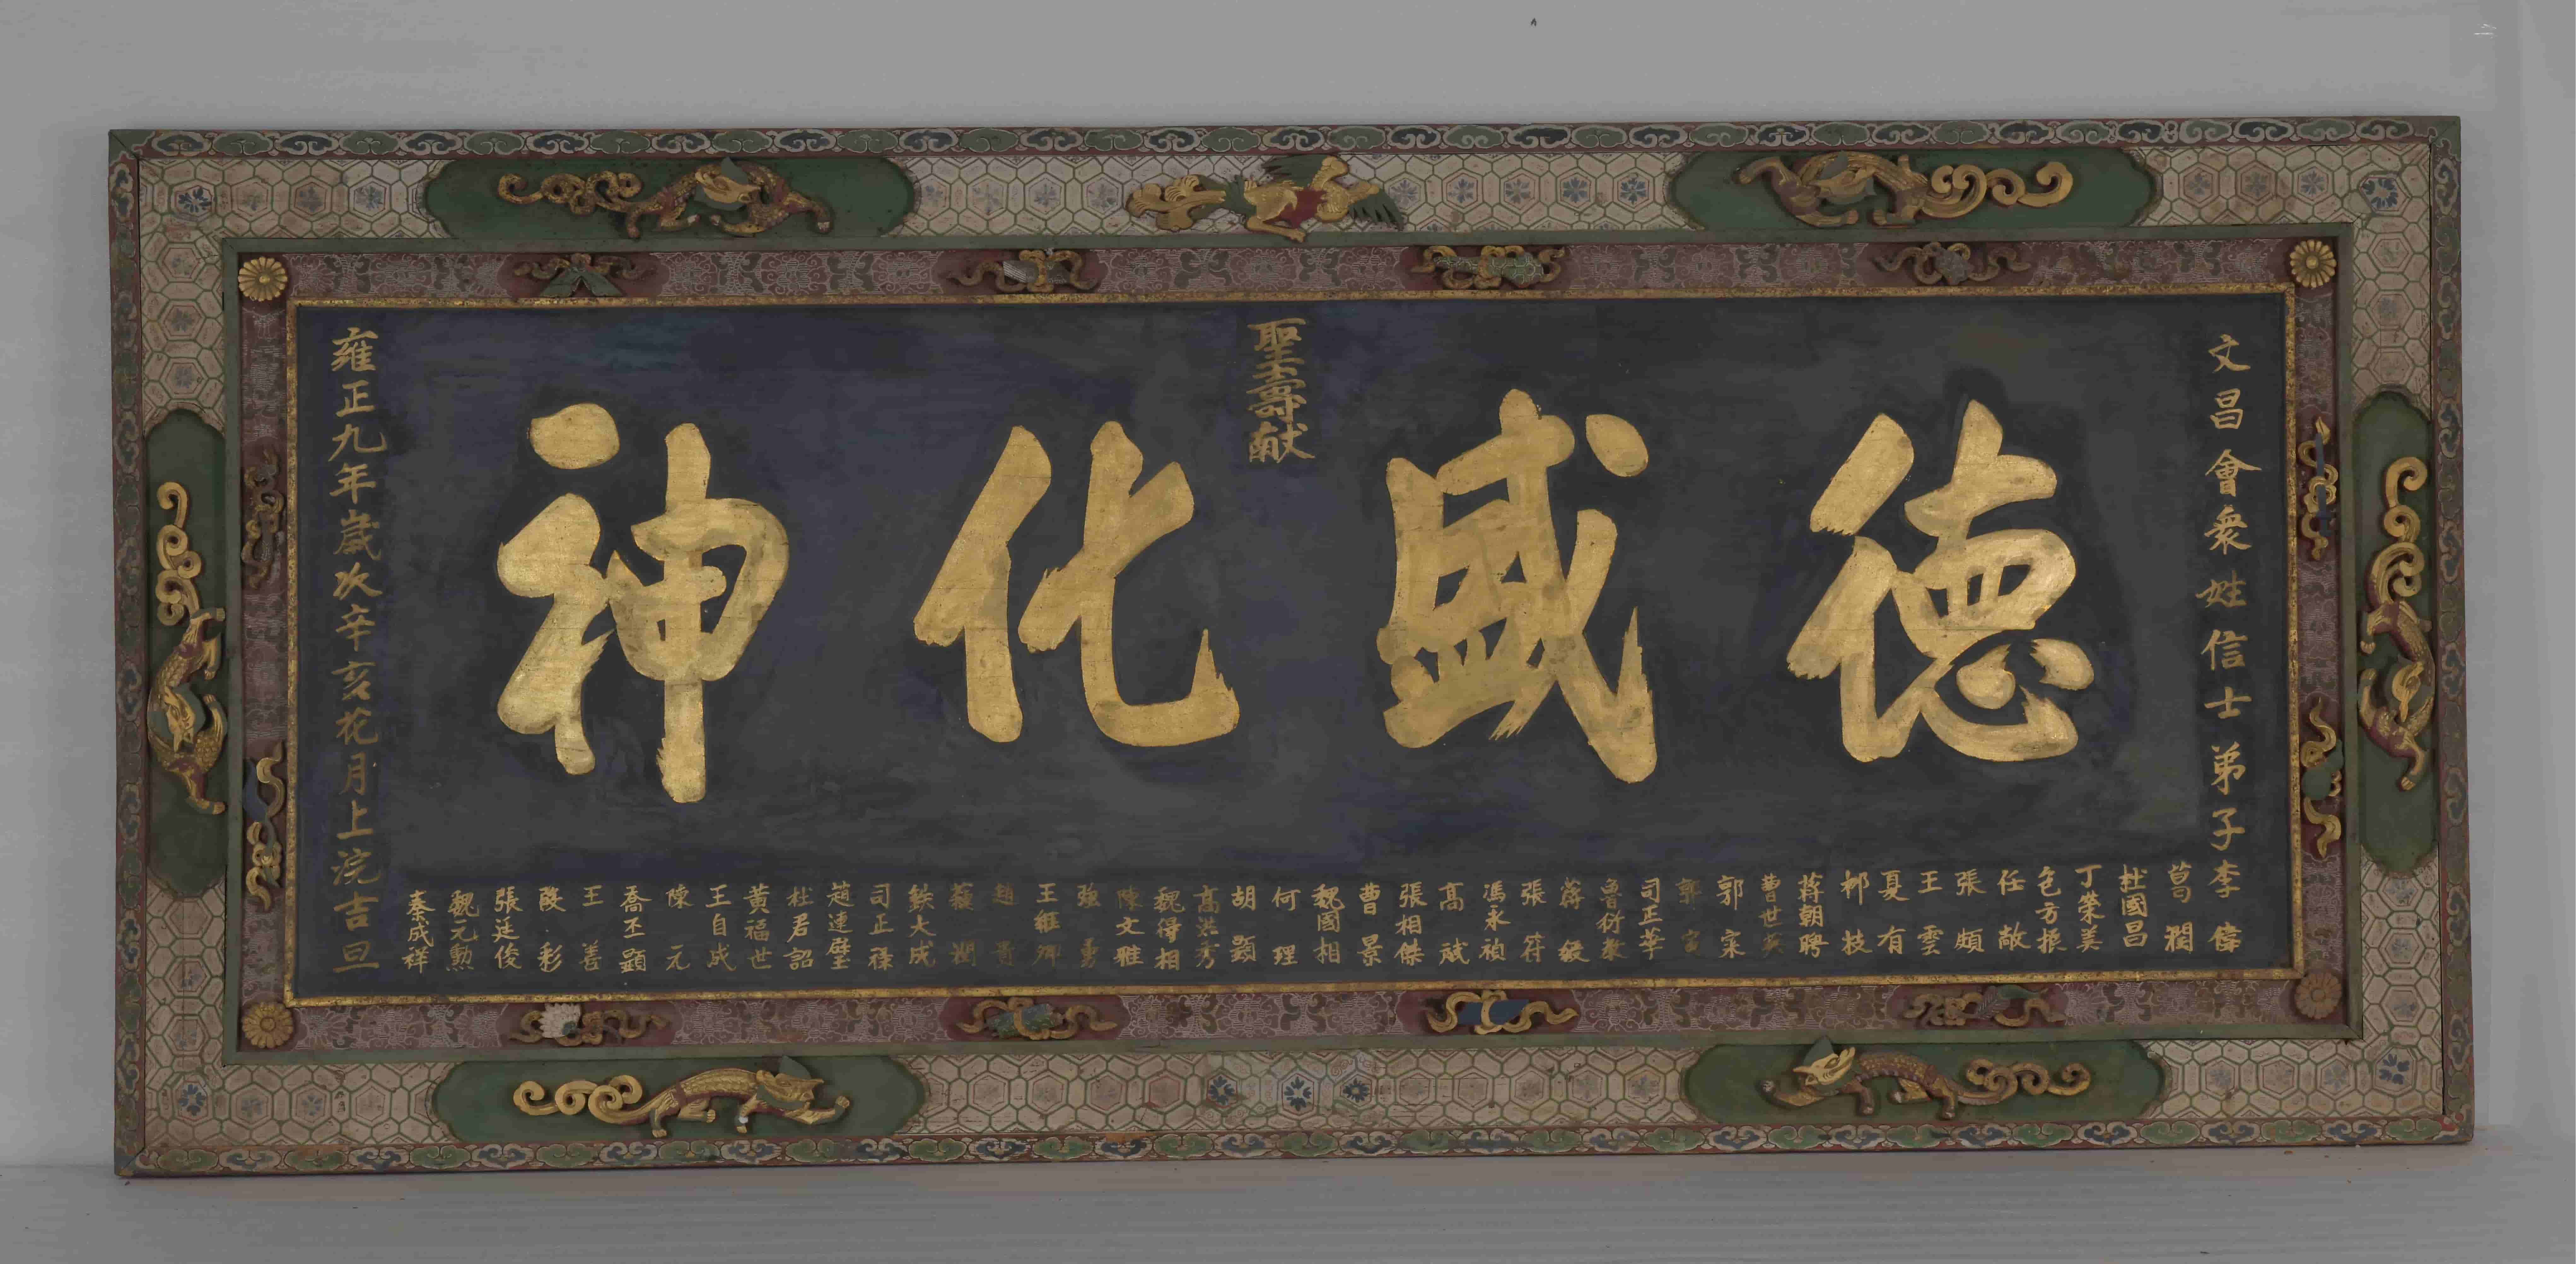 文昌會衆姓信士弟子
李偉
葛潤
杜國昌
丁榮美
包方振
任敞
張頗
王雲
夏有
柳枝
蔣朝聘
曹世英
郭宗
郭
司正華
魯衍教
蔣毅
張符
馮永禎
高斌
張相傑
曹景
魏國相
何理
胡顕
高洪秀
魏得相
陳文雅
強勇
王維卿
趙貴
蘇潤
鉄大成
司正祿
趙連璧
杜君詔
黃福世
王自成
陳元
喬丕顕
王善
彩
張廷俊
魏元勳
秦成祥
德盛化神
聖壽献
雍正九年歲次辛亥花月上浣吉旦